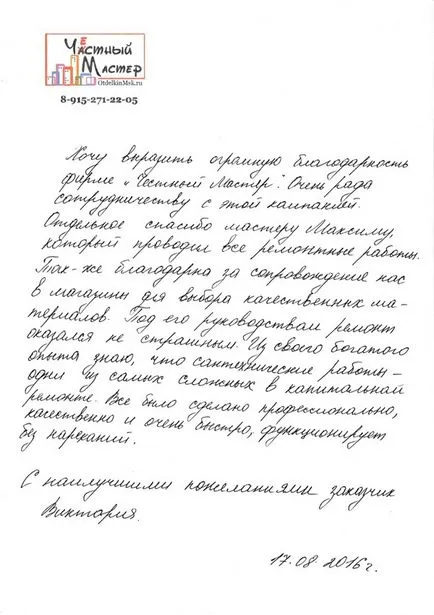 Честный
Мастер
OtdelkinMsk.ru
8-915-271-22-05
Хочу выразить огромную благодарность
фирме "Честный Мастер". Очень рада
сотрудничеству с этой кампанией.
Отдельное спасибо мастеру Максиму,
который проводил все ремонтные работы.
Так-же благодарна за сопровождение нас
в магазины для выбора качественных ма-
териалов. Под его руководством ремонт
оказался не страшным. Из своего богатого
опыта знаю, что сантехнические работы -
одни из самых сложных в капитальном
ремонте. Все было сделано профессионально,
качественно и очень быстро, функционирует
без нареканий.
С наилучшими пожеланиями заказчик
Виктория.
17.08.2016г.